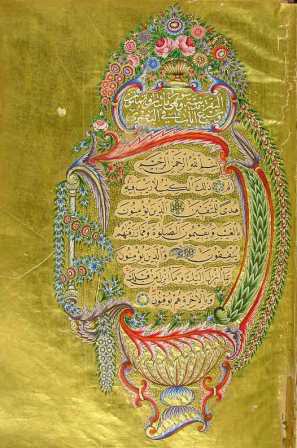 البقرة مدنية وهى مائتان وثمانون
وسبع ايات فى
بسم الله الرحمن الرحيم
الم ذلك الكتب لا ريب فيه
هدى للمتقين الذين يؤمنون
بالغيب ويقيمون الصلوة ومما رزقنهم
ينفقون والذين يؤمنون
بما انزل اليك وما انزل من قبلك
وبالاخرة هم يوقنون